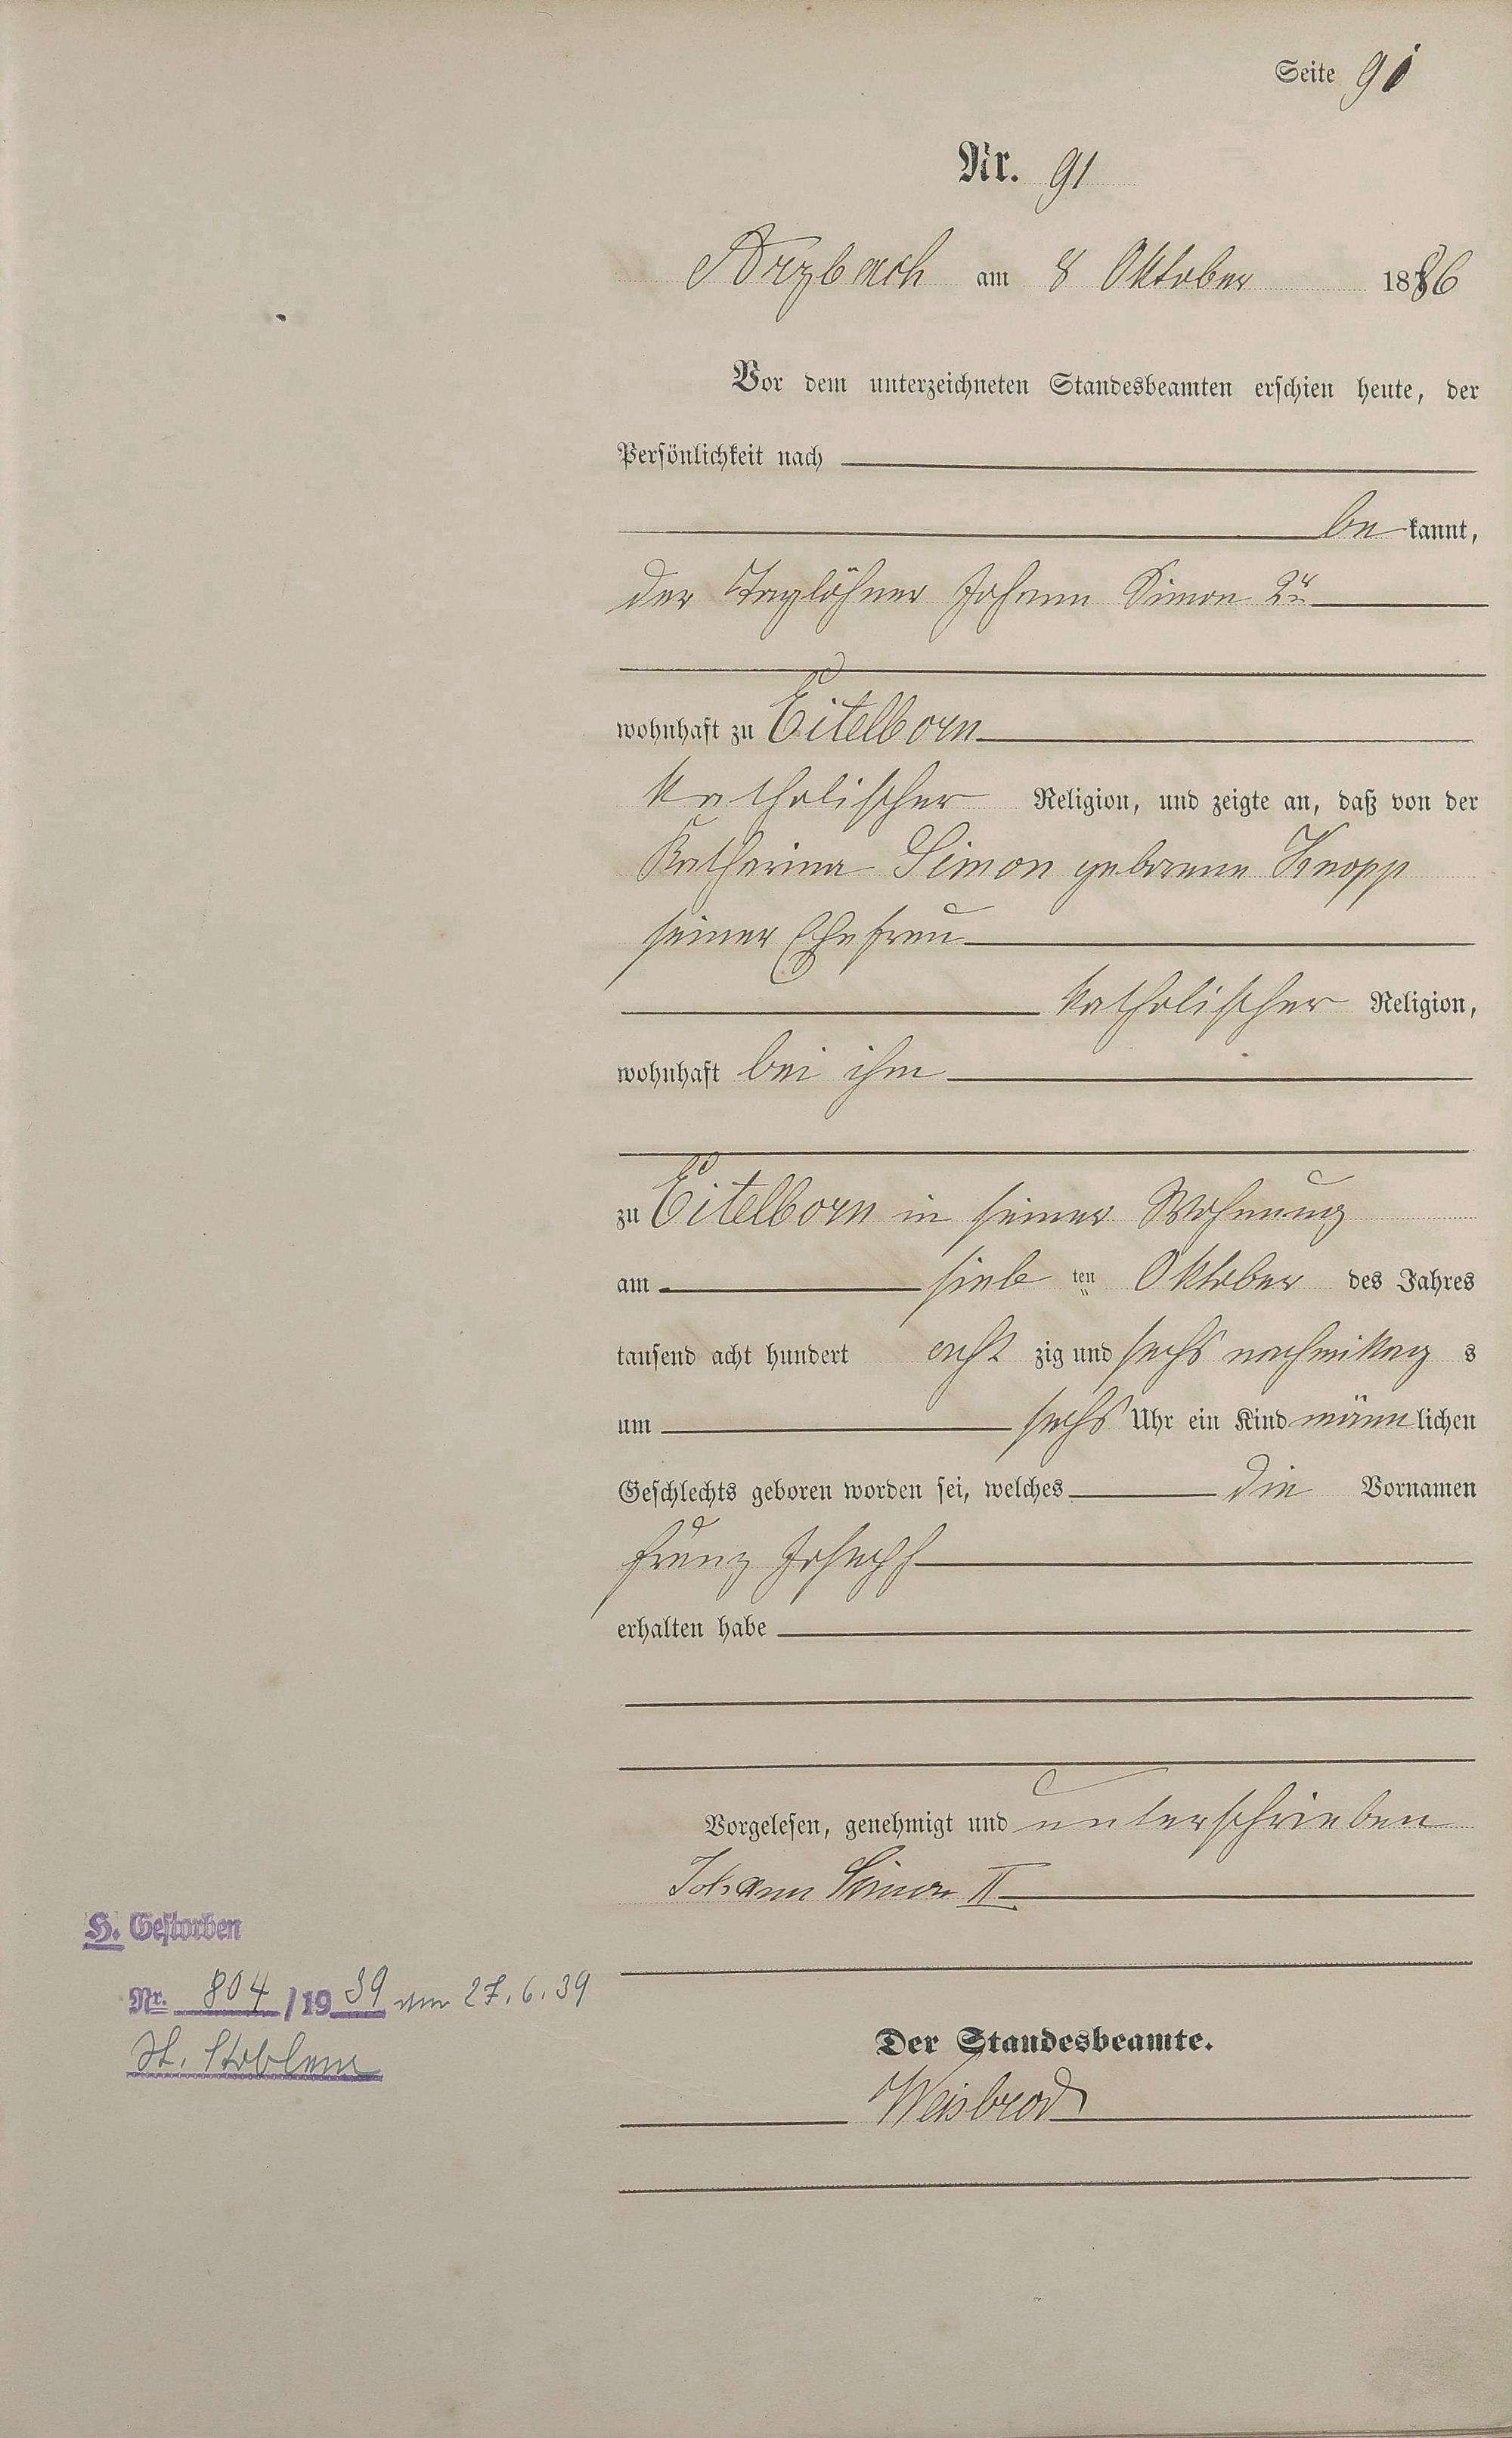 Seite 91
Nr. 91
Arzbach am 8 Oktober 1886
Vor dem unterzeichneten Standesbeamten erschien heute, der
Persönlichkeit nach
be kannt,
der Taglöhner Johann Simon 2r
wohnhaft zu Eitelborn
katholischer Religion, und zeigte an, daß von der
Katharina Simon geborene Knopp
seiner Ehefrau
katholischer Religion,
wohnhaft bei ihm
zu Eitelborn in seiner Wohnung
am sieb ten Oktober des Jahres
tausend acht hundert acht zig und sechs nachmittag s
um sechs Uhr ein Kind männ lichen
Geschlechts geboren worden sei, welches die Vornamen
Franz Joseph
erhalten habe
Vorgelesen, genehmigt und unterschrieben
Johann Simon II
H. Gestorben
Nr. 804 /19 39 vom 27.6.39
St. Koblenz
Der Standesbeamte.
Weisbrod